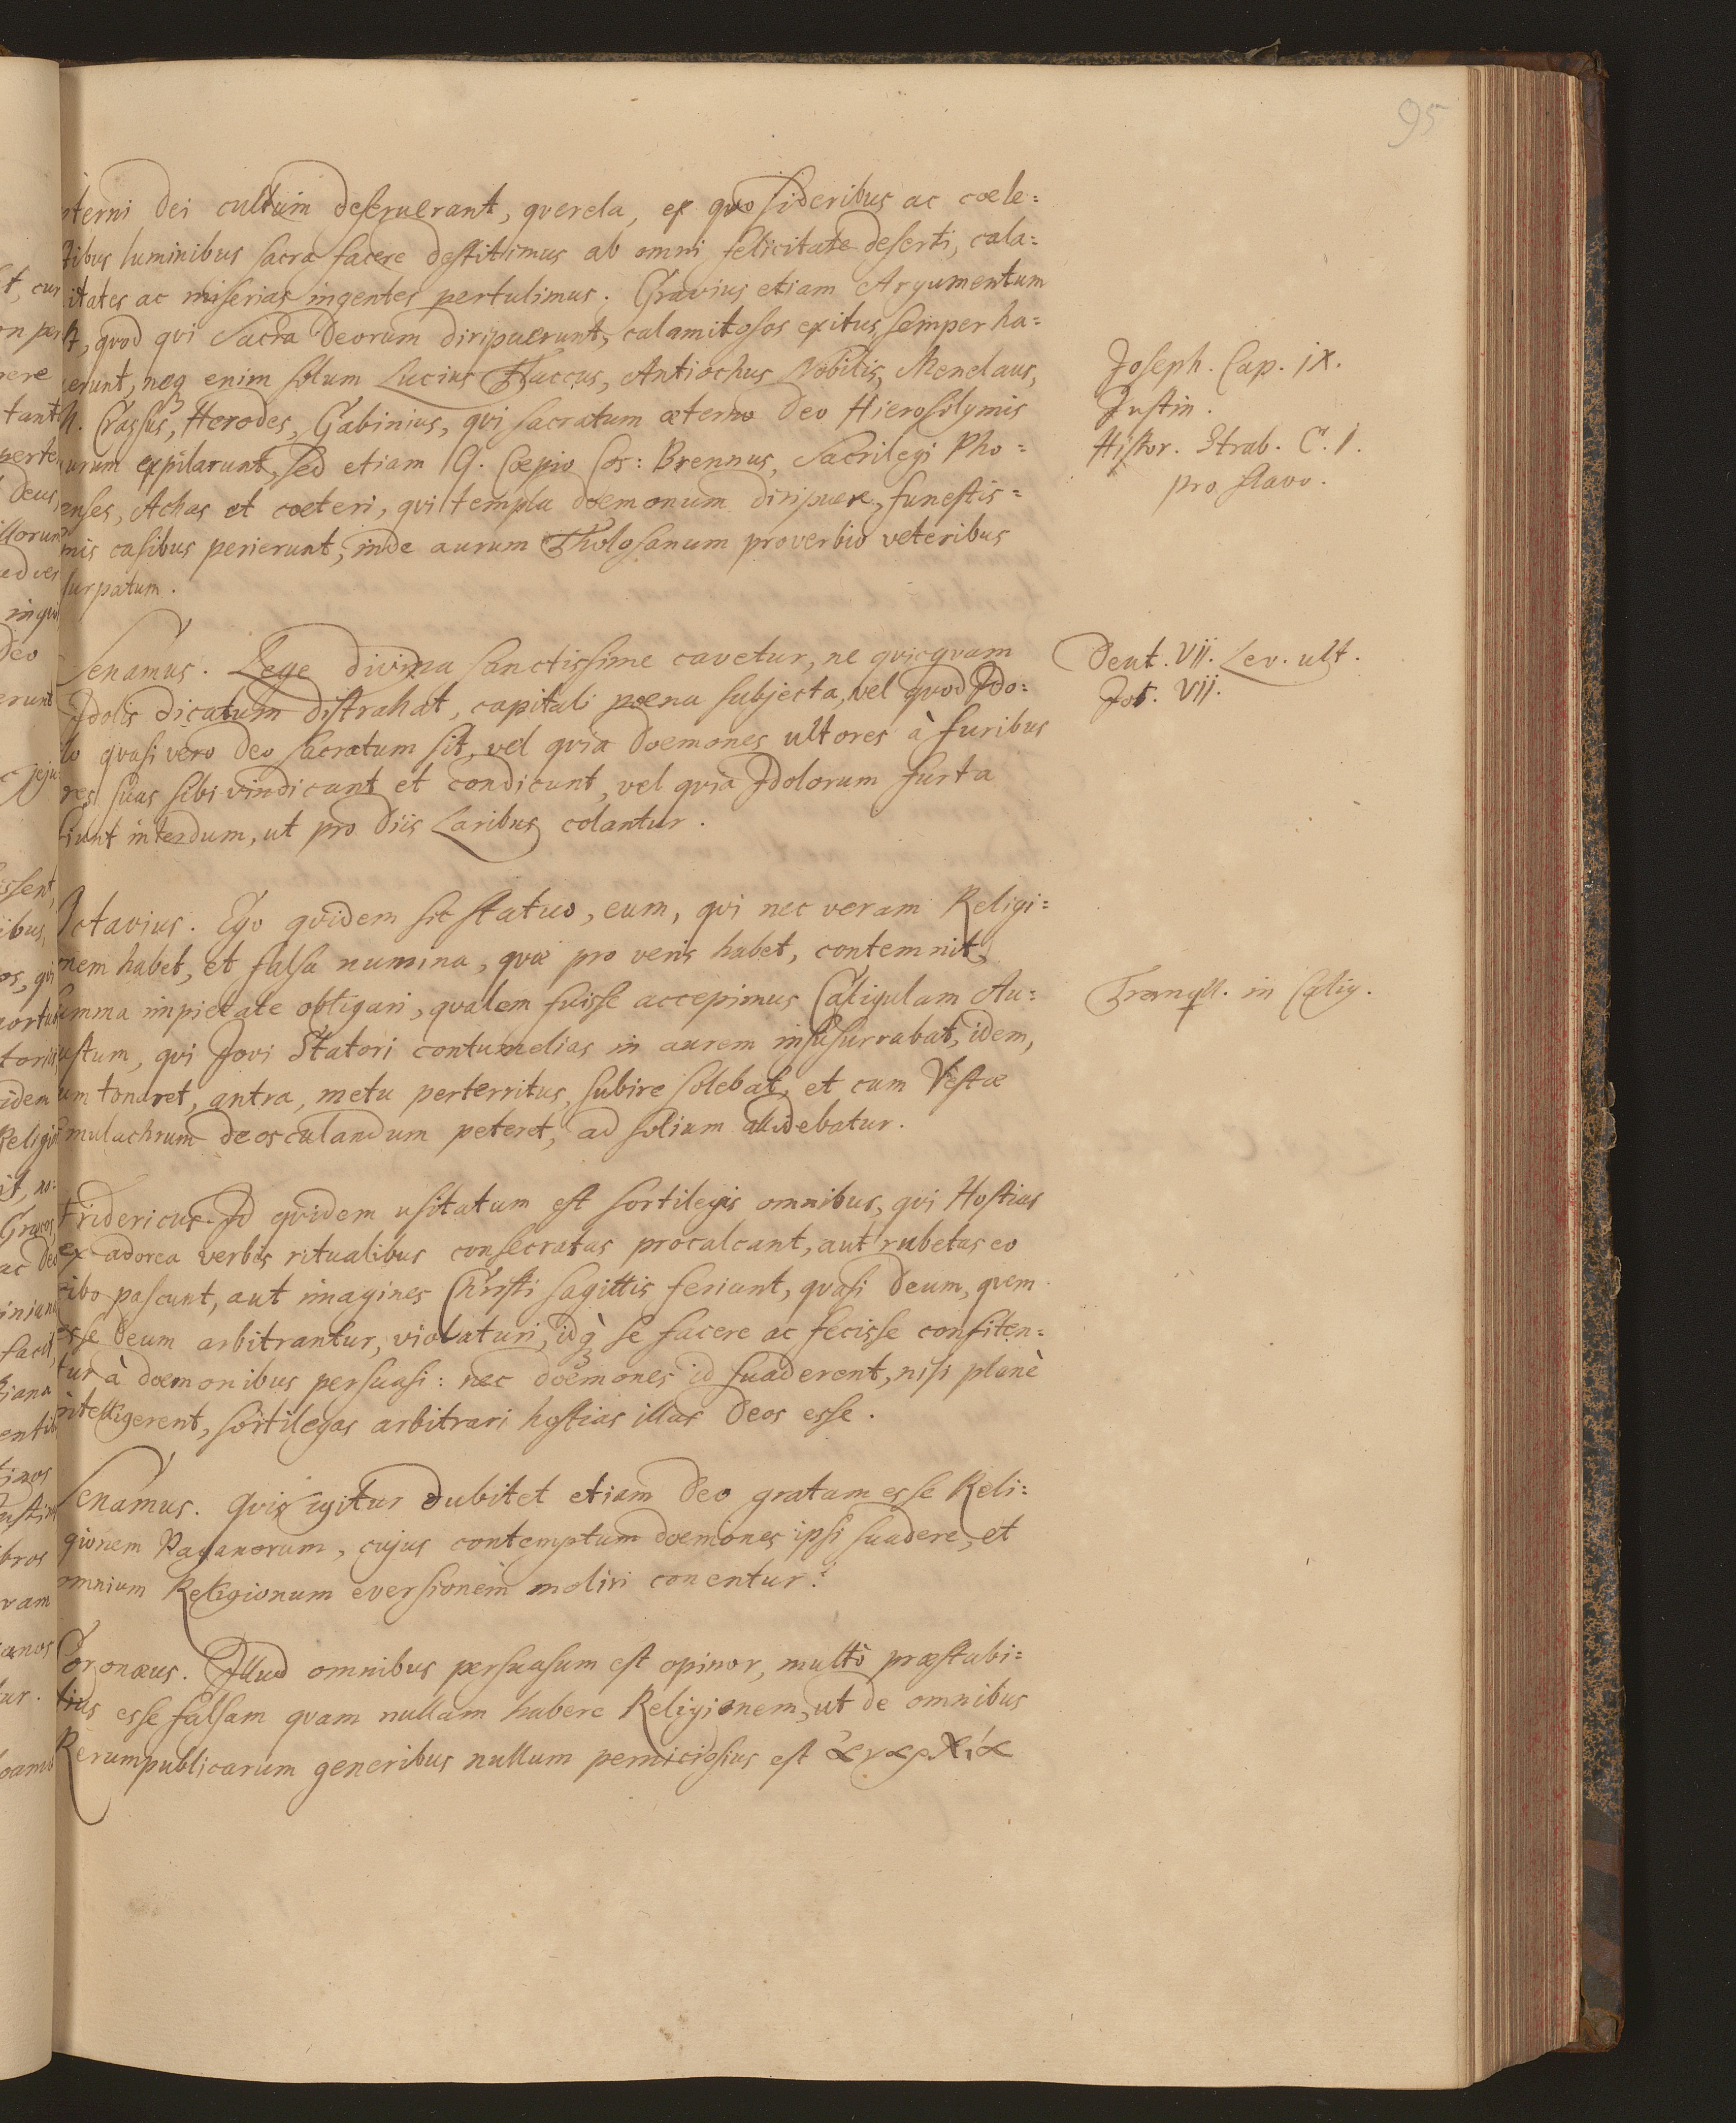 95
æterni Dei cultum deseruerant, querela, ex quo sideribus ac coele=
stibus luminibus sacra facere destitimus ab omni felicitate deserti, cala=
mitates ac miserias ingentes pertulimus. Gravius etiam Argumentum
est, quod qui Sacra Deorum diripuerunt, calamitosos exitus semper ha=
buerunt, neq enim solum Lucius Flaccus, Antiochus Nobilis, Menelaus,
M. Crassus, Herodes, Gabinius, qui sacratum æterno Deo Hierosolymis
aurum expilarunt, sed etiam Q. Cæpio Cos: Brennus, Sacrilegi Pho=
censes, Achas et coeteri, qui templa doemonum diripuere, funestis=
simis casibus perierunt; inde aurum Tholosanum proverbio veteribus
usurpatum.
Joseph. Cap. IX.
Justin.
Histor. Strab. C. 1.
pro flavo.
Senamus. Lege divina sanctissime cavetur, ne quicquam
Idolis dicatum distrahat, capitali poena subjecta, vel quod Ido=
lo quasi vero Deo sacratum sit, vel quia doemones ultores à furibus
res suas sibi vindicant et condicunt, vel quia Idolorum furta
fiunt interdum, ut pro Diis Laribus colantur.
Deut. VII. Lev. ult.
Jos. VII.
Octavius. Ego quidem sic statuo, eum, qui nec veram Religi=
onem habet, et falsa numina, quæ pro veris habet, contemnit,
summa impietate obligari, qualem fuisse accepimus Caligulam Au=
gustum, qui Jovi Statori contumelias in aurem insusurrabat, idem,
cum tonaret, antra, metu perterritus, subire solebat, et cum Vestæ
simulachrum deosculandum peteret, ad solium allidebatur.
Tranqll. in Calig.
Fridericus. Id quidem usitatum est sortilegis omnibus, qui Hostias
ex adorea verbis ritualibus consecratas procalcant, aut rubetas eo
cibo pascunt, aut imagines Christi sagittis feriunt, quasi Deum, quem
esse Deum arbitrantur, violaturi, idq; se facere ac fecisse confiten=
tur à doemonibus persuasi: nec doemones id suaderent, nisi planè
intelligerent, sortilegas arbitrari hostias illas Deos esse.
Senamus. Quis igitur dubitet etiam Deo gratam esse Reli=
gionem Paganorum, cujus contemptum doemones ipsi suadere, et
omnium Religionum eversionem moliri conentur?
Coronæus. Illud omnibus persuasum est opinor, multò præstabi=
lius esse falsam quam nullam habere Religionem, ut de omnibus
Rerumpublicarum generibus nullum perniciosius est ἀναρχία